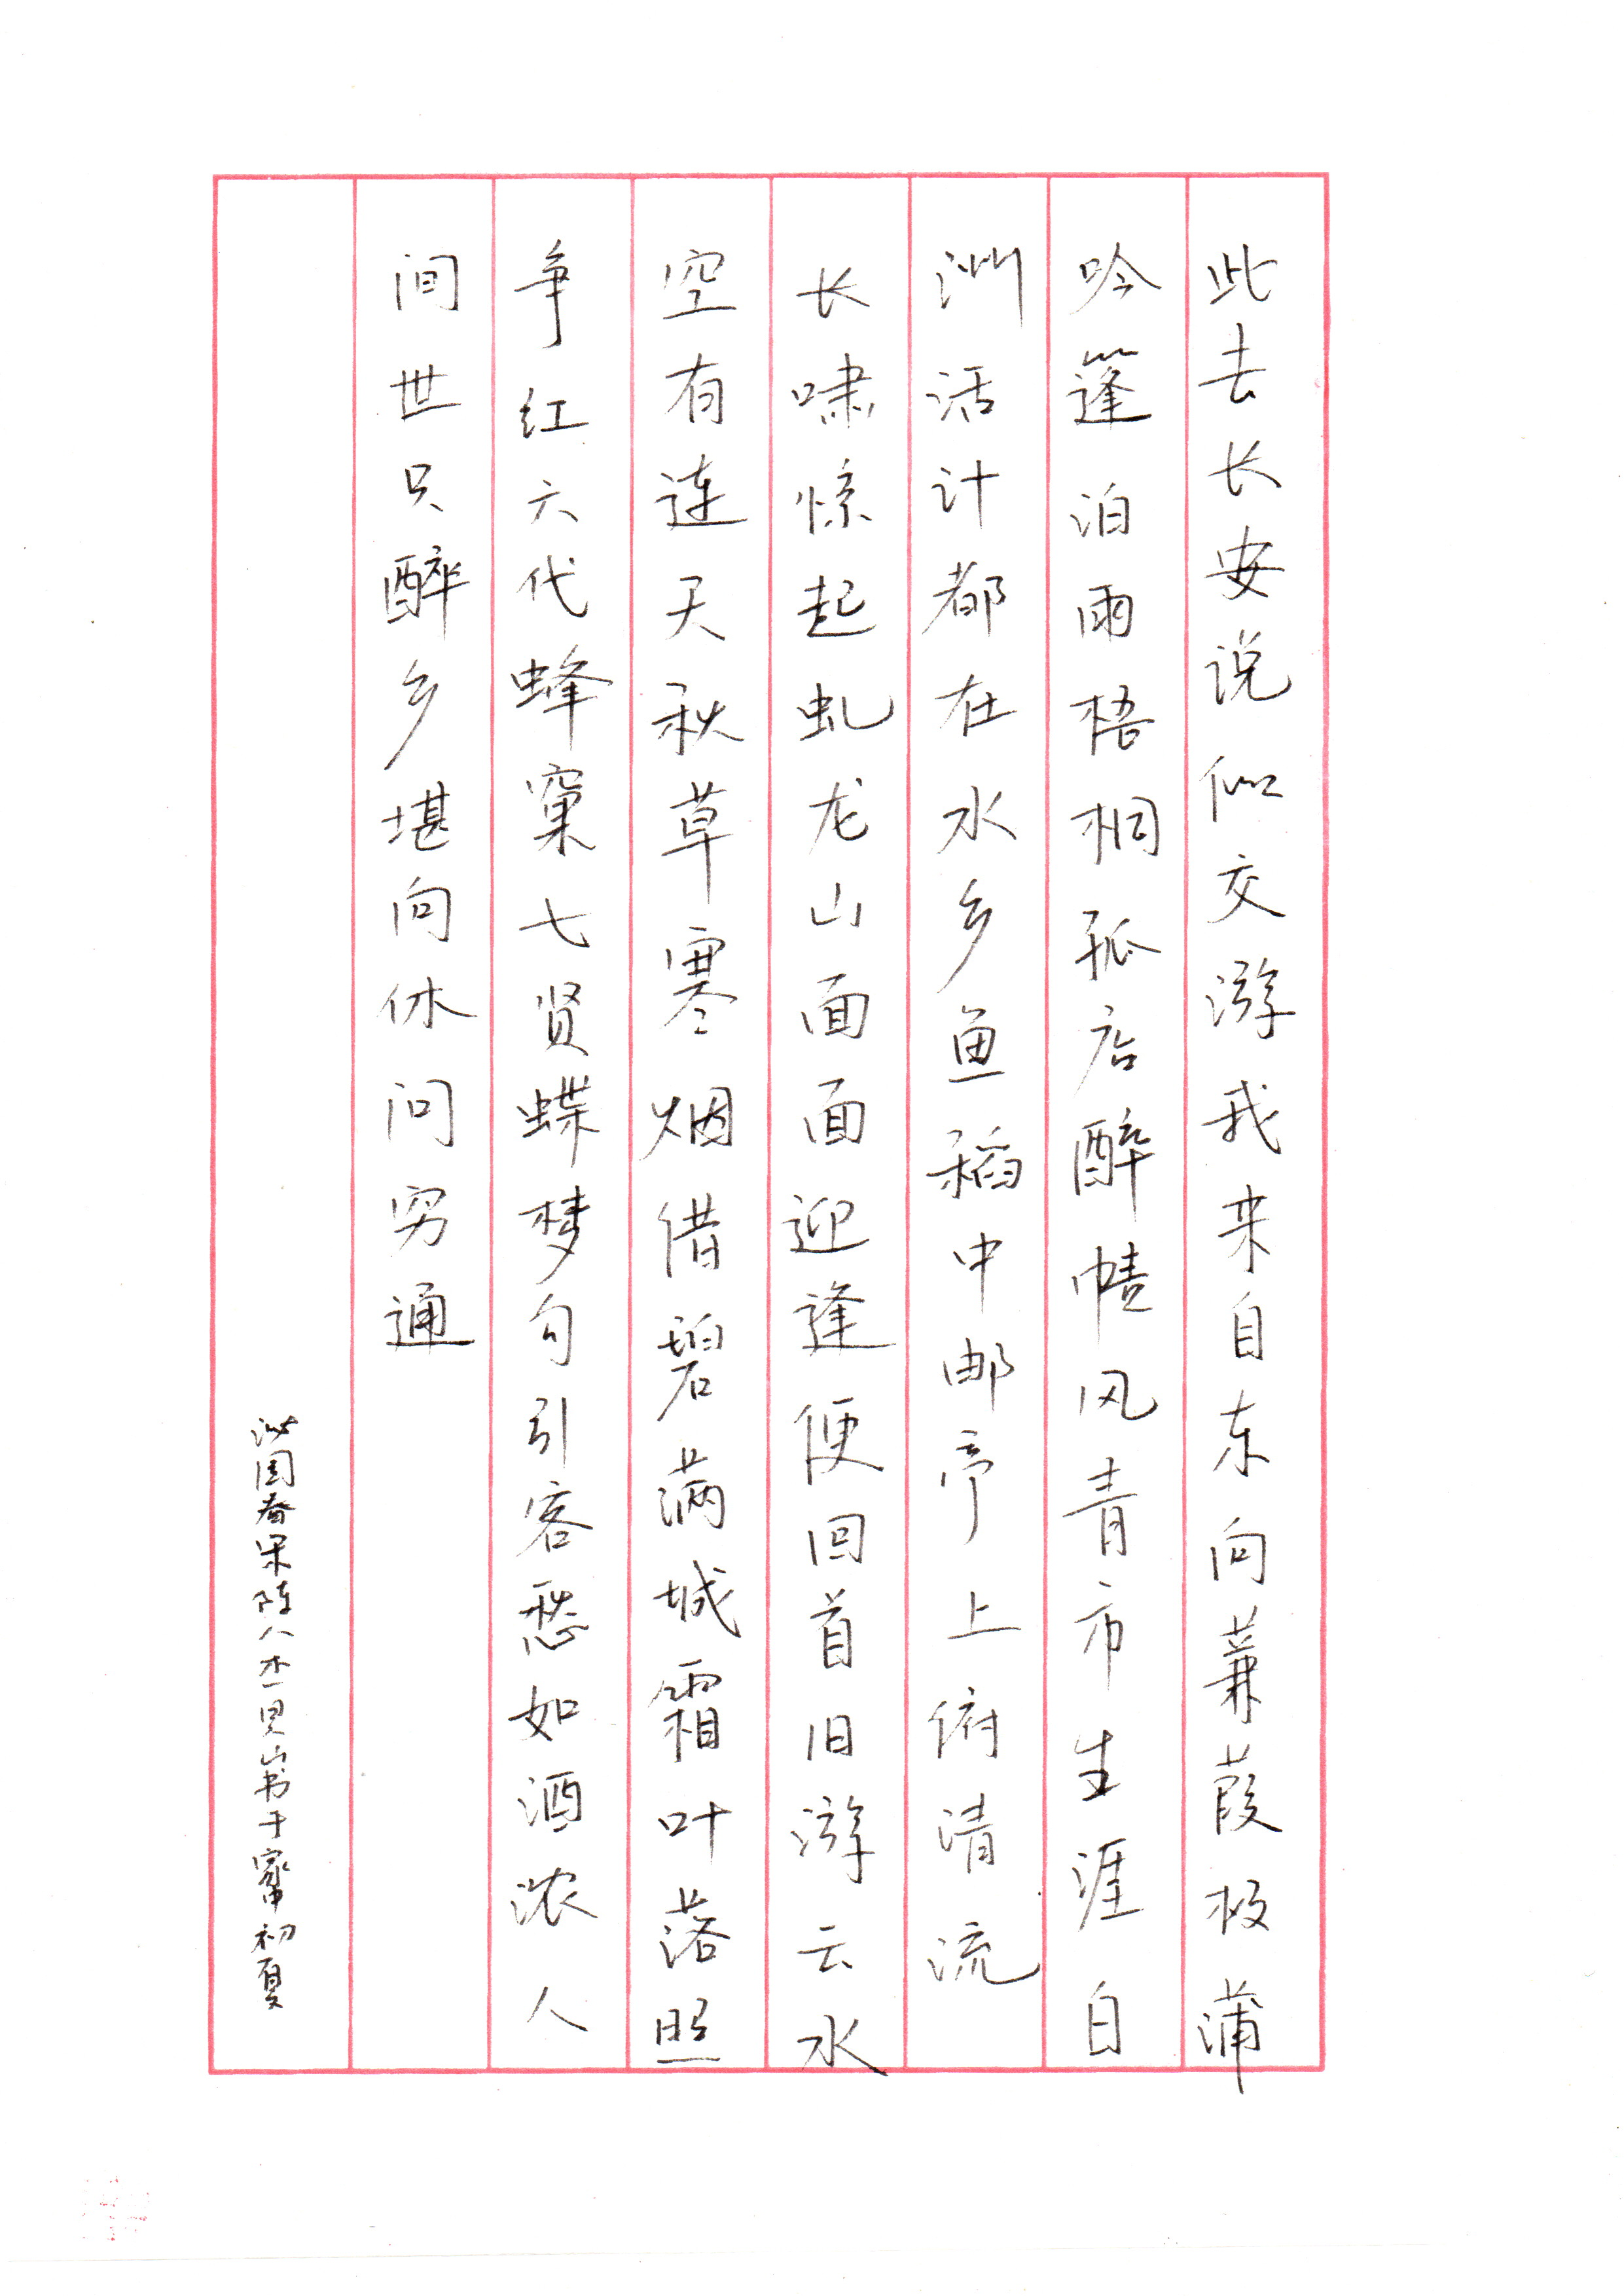 此去长安说似交游我来自东向蒹葭极蒲
吟篷泊雨梧桐孤店醉帻风青市生涯白
洲活计都在水乡鱼稻中邮亭上俯清流
长啸惊起虬龙山面面迎逢便回首旧游云水
空有连天秋草寒烟借碧满城霜叶落照
争红六代蜂窠七贤蝶梦句引客愁如酒浓人
间世只醉乡堪向休问穷通
沁园春宋陈人杰 书于 初夏